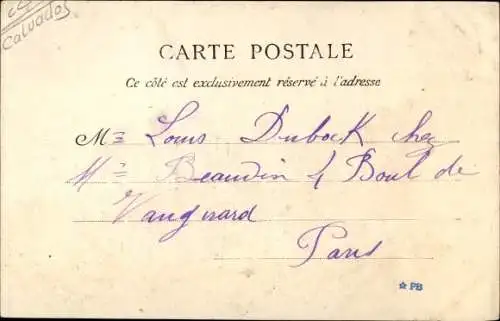 Calvados
CARTE POSTALE
Ce côté est exclusivement réservé à l'adresse
M= Louis Dubock chez
M= Beaudin 4 Boul de
Vaugirard
Paris
☆ PB